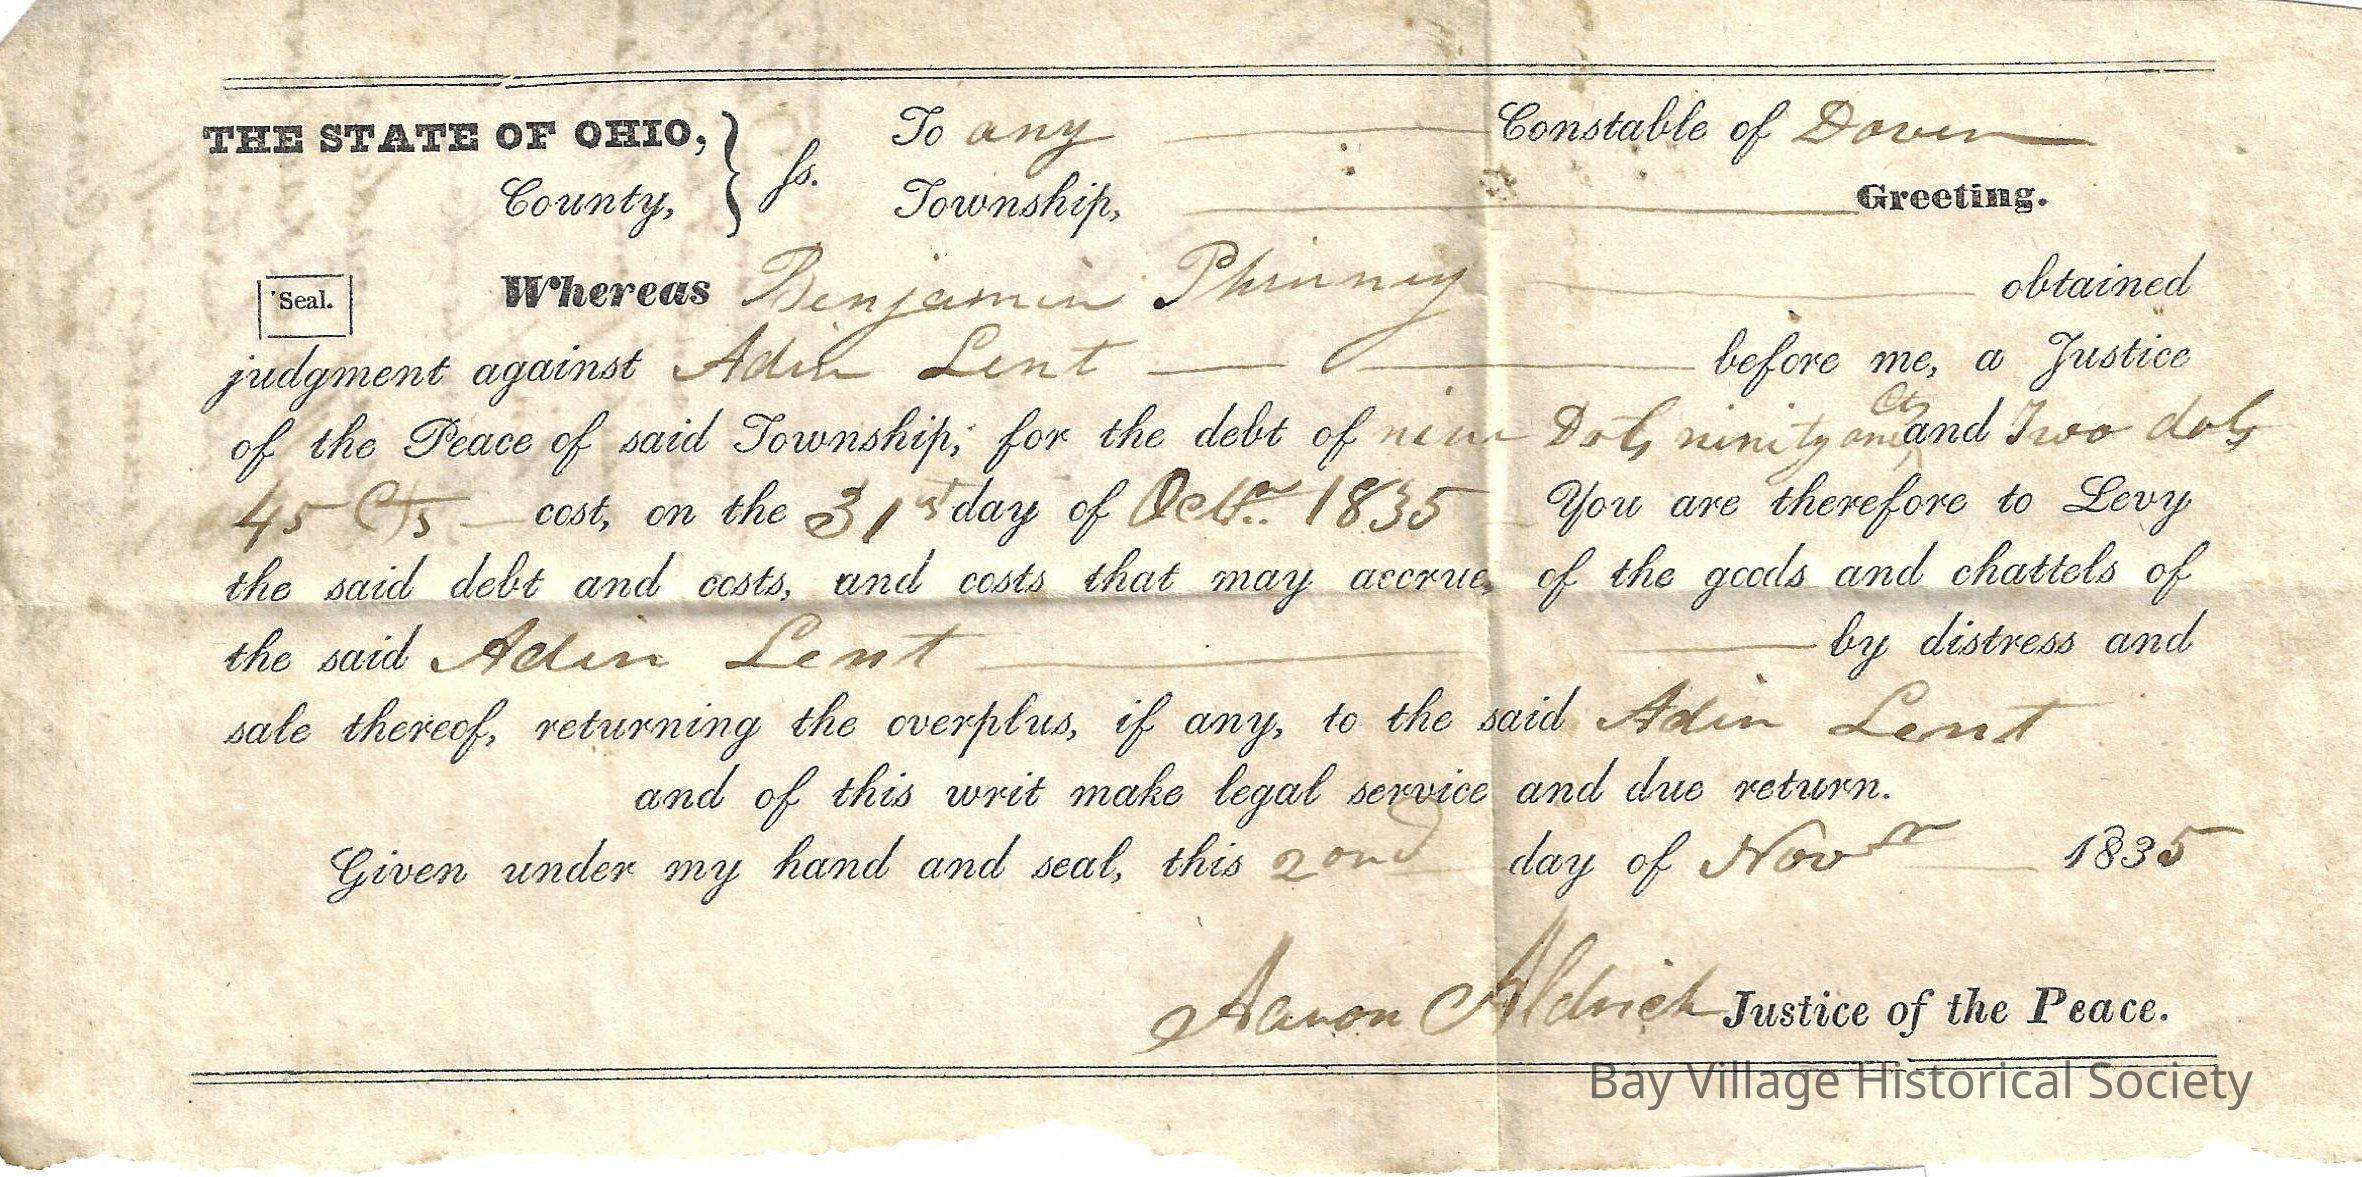 THE STATE OF OHIO, } ss. To any Constable of Dover
County, Township, Greeting.
Seal. Whereas Benjamin Phinney obtained
judgment against Adin Lent before me, a Justice
of the Peace of said Township, for the debt of nine Dols ninity one Cts and Two dols
45 Cts cost, on the 31st day of Octr. 1835 You are therefore to Levy
the said debt and costs, and costs that may accrue, of the goods and chattels of
the said Adin Lent by distress and
sale thereof, returning the overplus, if any, to the said Adin Lent
and of this writ make legal service and due return.
Given under my hand and seal, this 2ond day of Novr 1835
Aaron Aldrich Justice of the Peace.
Bay Village Historical Society